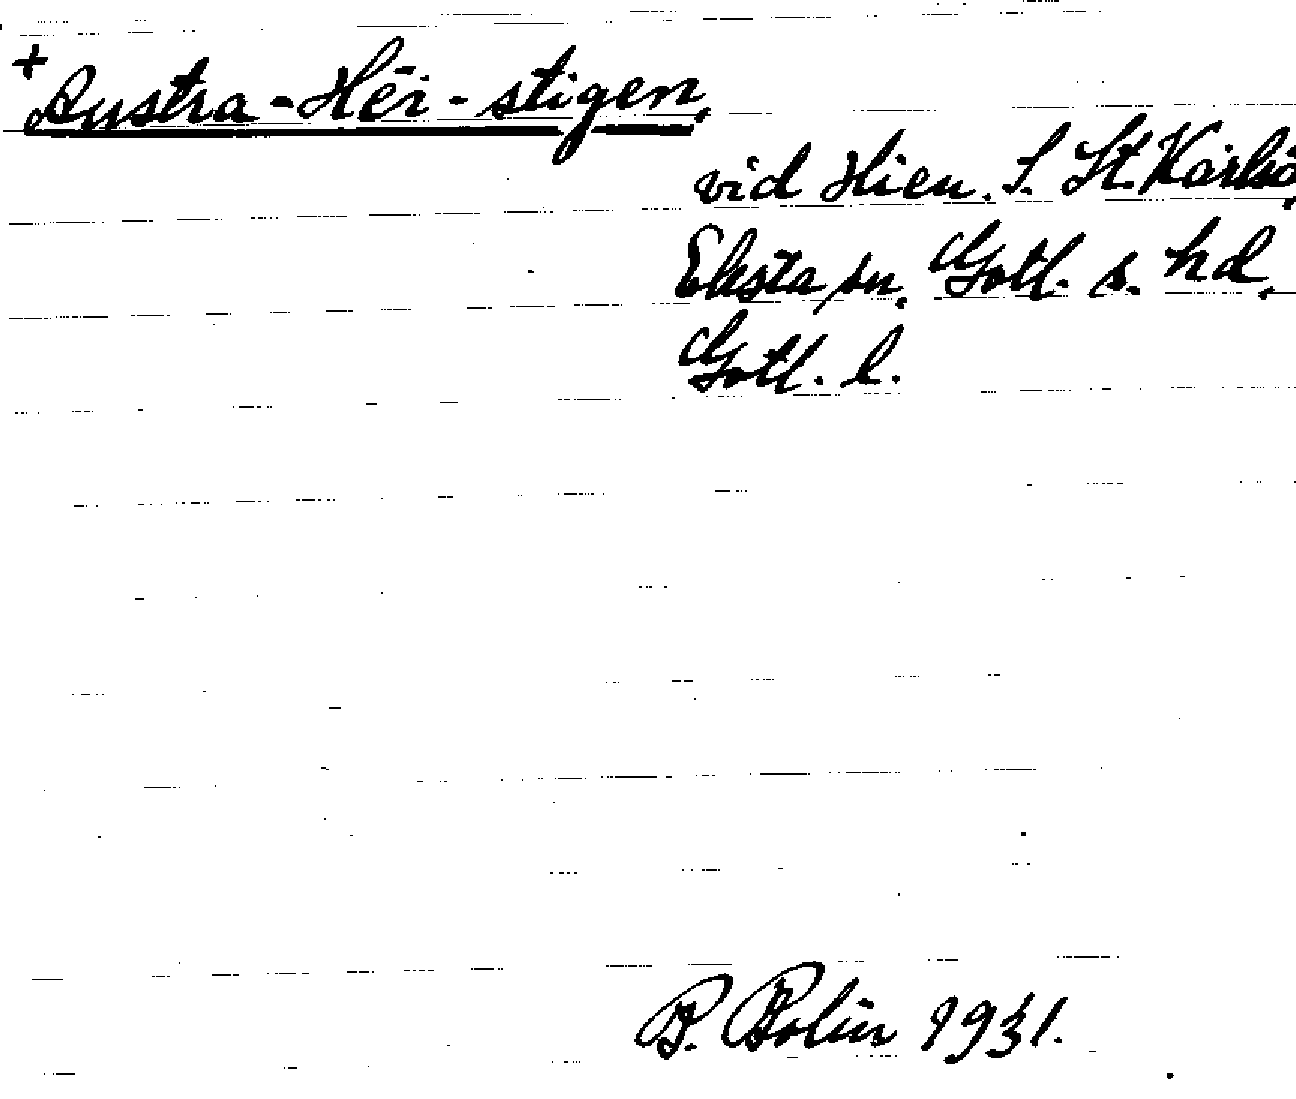 +
Austra-Hēi-stigen,
vid Hien. S. St. Karlsö,
Eksta sn, Gotl. s. hd,
Gotl. l.
B. Bolin 1931.